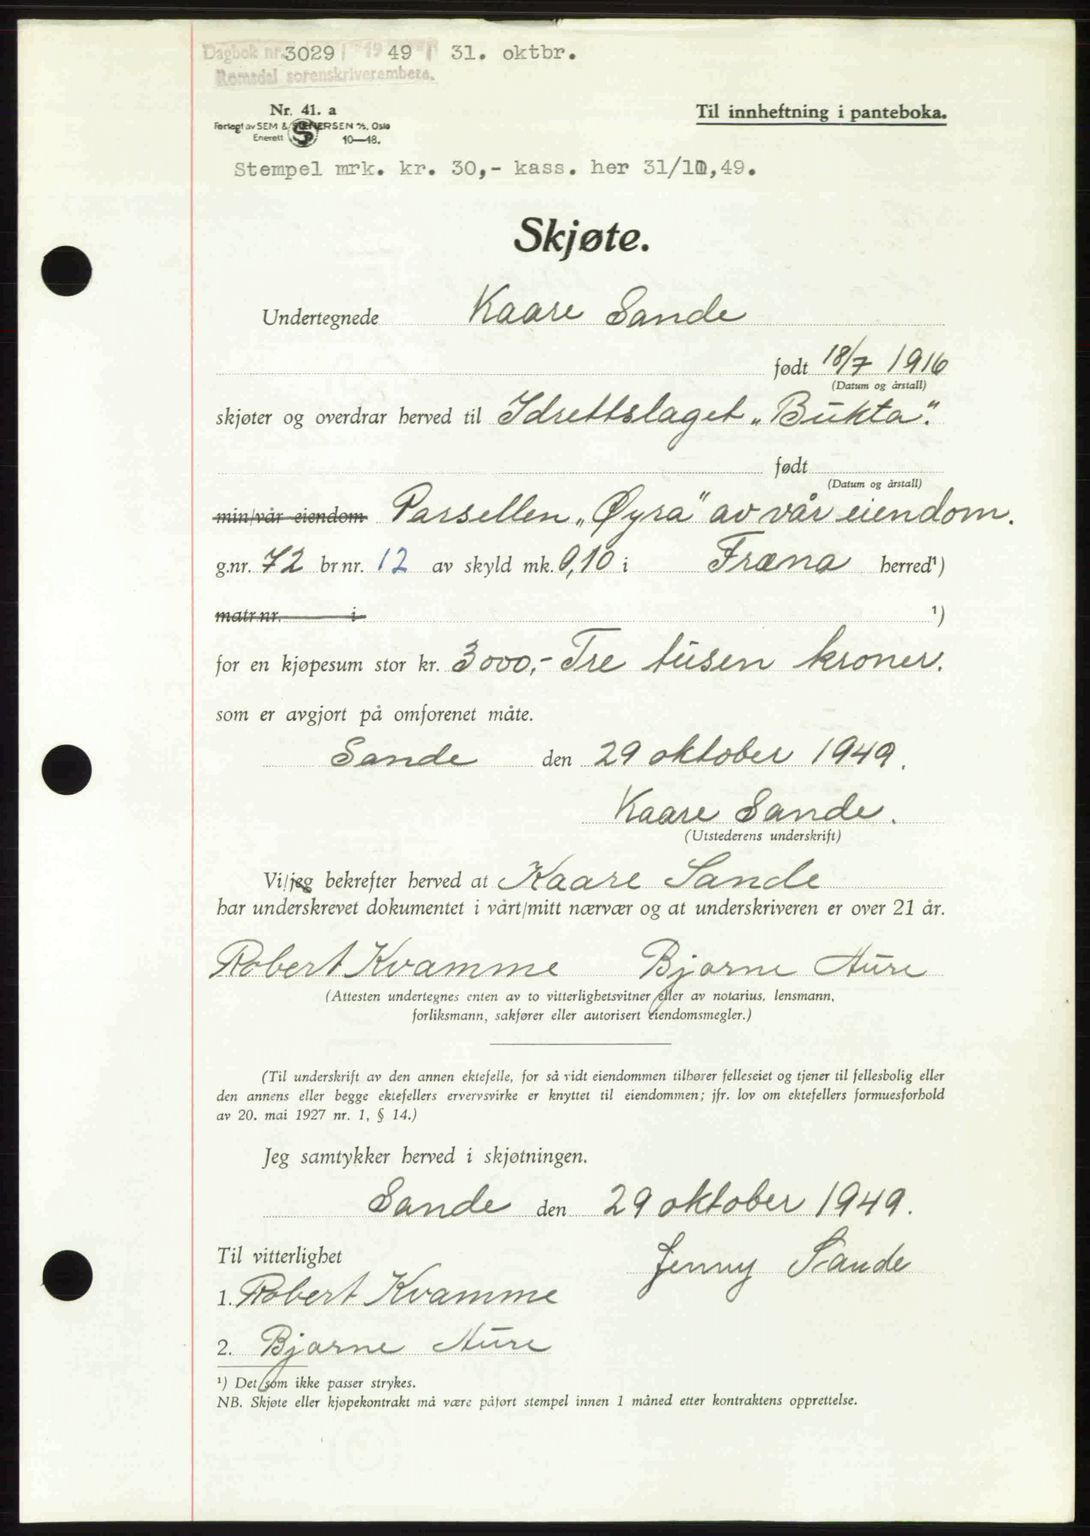 Dagbok nr. 3029 / 1949 31. oktbr.
Romsdal sorenskriverembete.
Nr. 41. a
Forlegt av SEM & STENERSEN A/S, Oslo
Enerett 10—48.
Til innheftning i panteboka.
Stempel mrk. kr. 30,- kass. her 31/10,49.
Skjøte.
Undertegnede Kaare Sande
født 18/7 1916
(Datum og årstall)
skjøter og overdrar herved til Idrettslaget „Bukta".
født
(Datum og årstall)
min/vår eiendom Parsellen „Øyra" av vår eiendom.
g.nr. 72 br.nr. 12 av skyld mk. 0,10 i Fræna herred¹)
matr.nr. i ¹)
for en kjøpesum stor kr. 3000,- Tre tusen kroner.
som er avgjort på omforenet måte.
Sande den 29 oktober 1949.
Kaare Sande.
(Utstederens underskrift)
Vi/jeg bekrefter herved at Kaare Sande
har underskrevet dokumentet i vårt/mitt nærvær og at underskriveren er over 21 år.
Robert Kvamme Bjarne Aure
(Attesten undertegnes enten av to vitterlighetsvitner eller av notarius, lensmann,
forliksmann, sakfører eller autorisert eiendomsmegler.)
(Til underskrift av den annen ektefelle, for så vidt eiendommen tilhører felleseiet og tjener til fellesbolig eller
den annens eller begge ektefellers ervervsvirke er knyttet til eiendommen; jfr. lov om ektefellers formuesforhold
av 20. mai 1927 nr. 1, § 14.)
Jeg samtykker herved i skjøtningen.
Sande den 29 oktober 1949.
Til vitterlighet Jenny Sande
1. Robert Kvamme
2. Bjarne Aure
¹) Det som ikke passer strykes.
NB. Skjøte eller kjøpekontrakt må være påført stempel innen 1 måned etter kontraktens opprettelse.